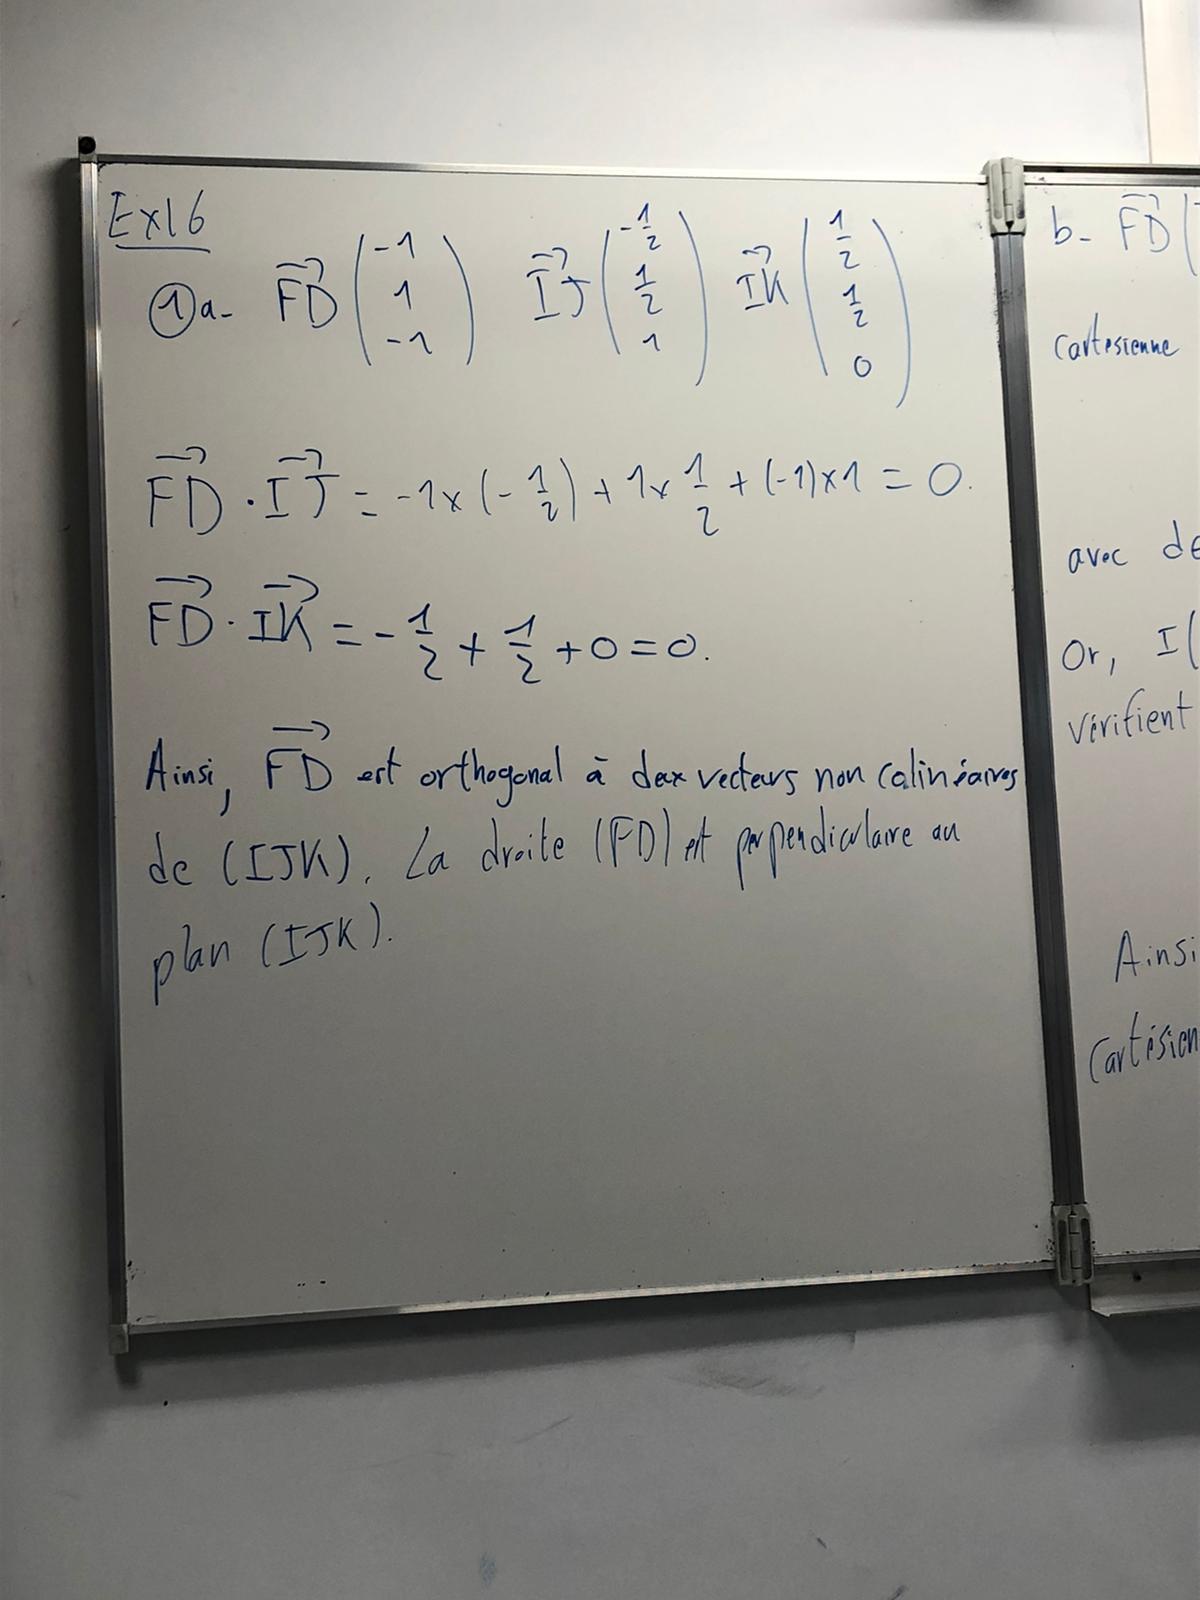 Ex16
①a- FD→ (-1 1 -1) IJ→ (-1/2 1/2 1) IK→ (1/2 1/2 0)
FD→ · IJ→ = -1×(-1/2) + 1×1/2 + (-1)×1 = 0.
FD→ · IK→ = -1/2 + 1/2 + 0 = 0.
Ainsi, FD→ est orthogonal à deux vecteurs non colinéaires
de (IJK). La droite (FD) est perpendiculaire au
plan (IJK).
b- FD→ (
cartésienne
avec de
Or, I(
vérifient
Ainsi
cartésien